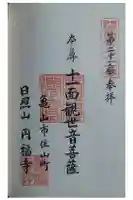 第二十二番参拝
本尊
十一面観世音菩薩
亀山市住山町
日照山円福寺